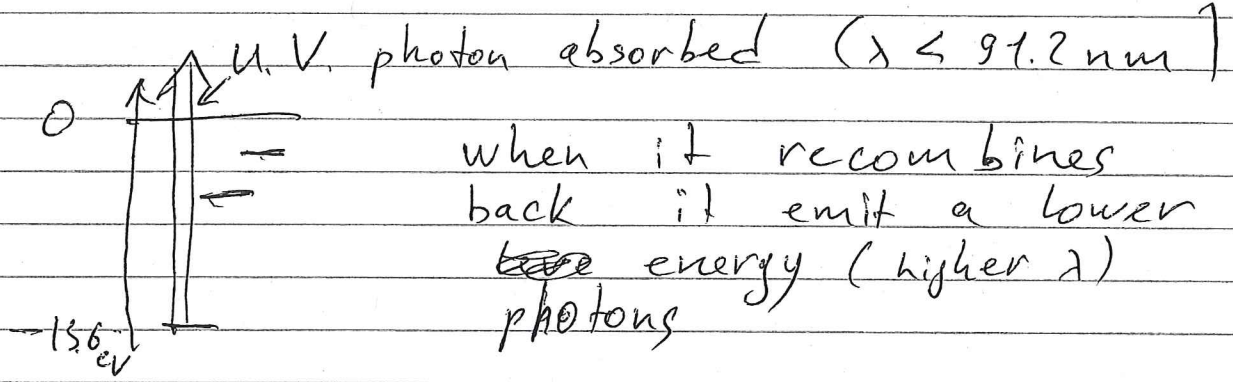 U.V. photon absorbed (λ < 91.2 nm)
0
when it recombines
back it emit a lower
energy (higher λ)
photons
-13.6 eV